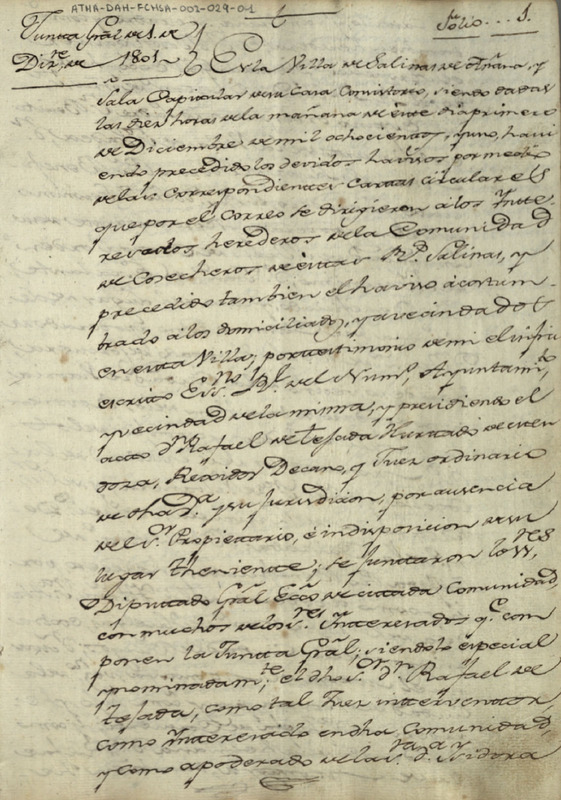 ATHA-DAH-FCHSA-002-029-01
Folio... 1.
Junta Gral de 1. de
Dizre, de 1801
En la Villa de Salinas de Añana, y
Sala Capitular de su Casa Consistorio, siendo dadas
las diez horas de la mañana de este dia primero
de Diciembre de mil ochocientos, y uno, havi
endo precedido los devidos havisos por medio
de las Correspondientes Cartas circulares
que por el Correo se dirigieron a los Inte-
resados herederos de la Comunidad
de Cosecheros de estas Rs. Salinas, y
precedido tambien el haviso acostum
brado a los domiciliados, y avecindados
en esta Villa, por testimonio de mi el infra
escrito Essno Rl. del Numo, Ayuntamto
y vecindad de la misma, y presidiendo el
acto Dn Rafael de Tejada Hurtado de Men
doza, Regidor Decano, y Juez ordinario
de dha Va. y su Jurisdicion, por ausencia
del Sr. Propietario, é indisposicion de su
lugar theniente; se juntaron los SSres
Diputado Gral Ecco de citada Comunidad,
con muchos de los Sres Interesados qe com
ponen la Junta Gral; siendolo especial
y nominadamte, el dho Sor. Dn Rafael de
Tejada, como tal Juez interventor,
como Interesado en dha Comunidad,
y como apoderado de la Sra Da Isidora